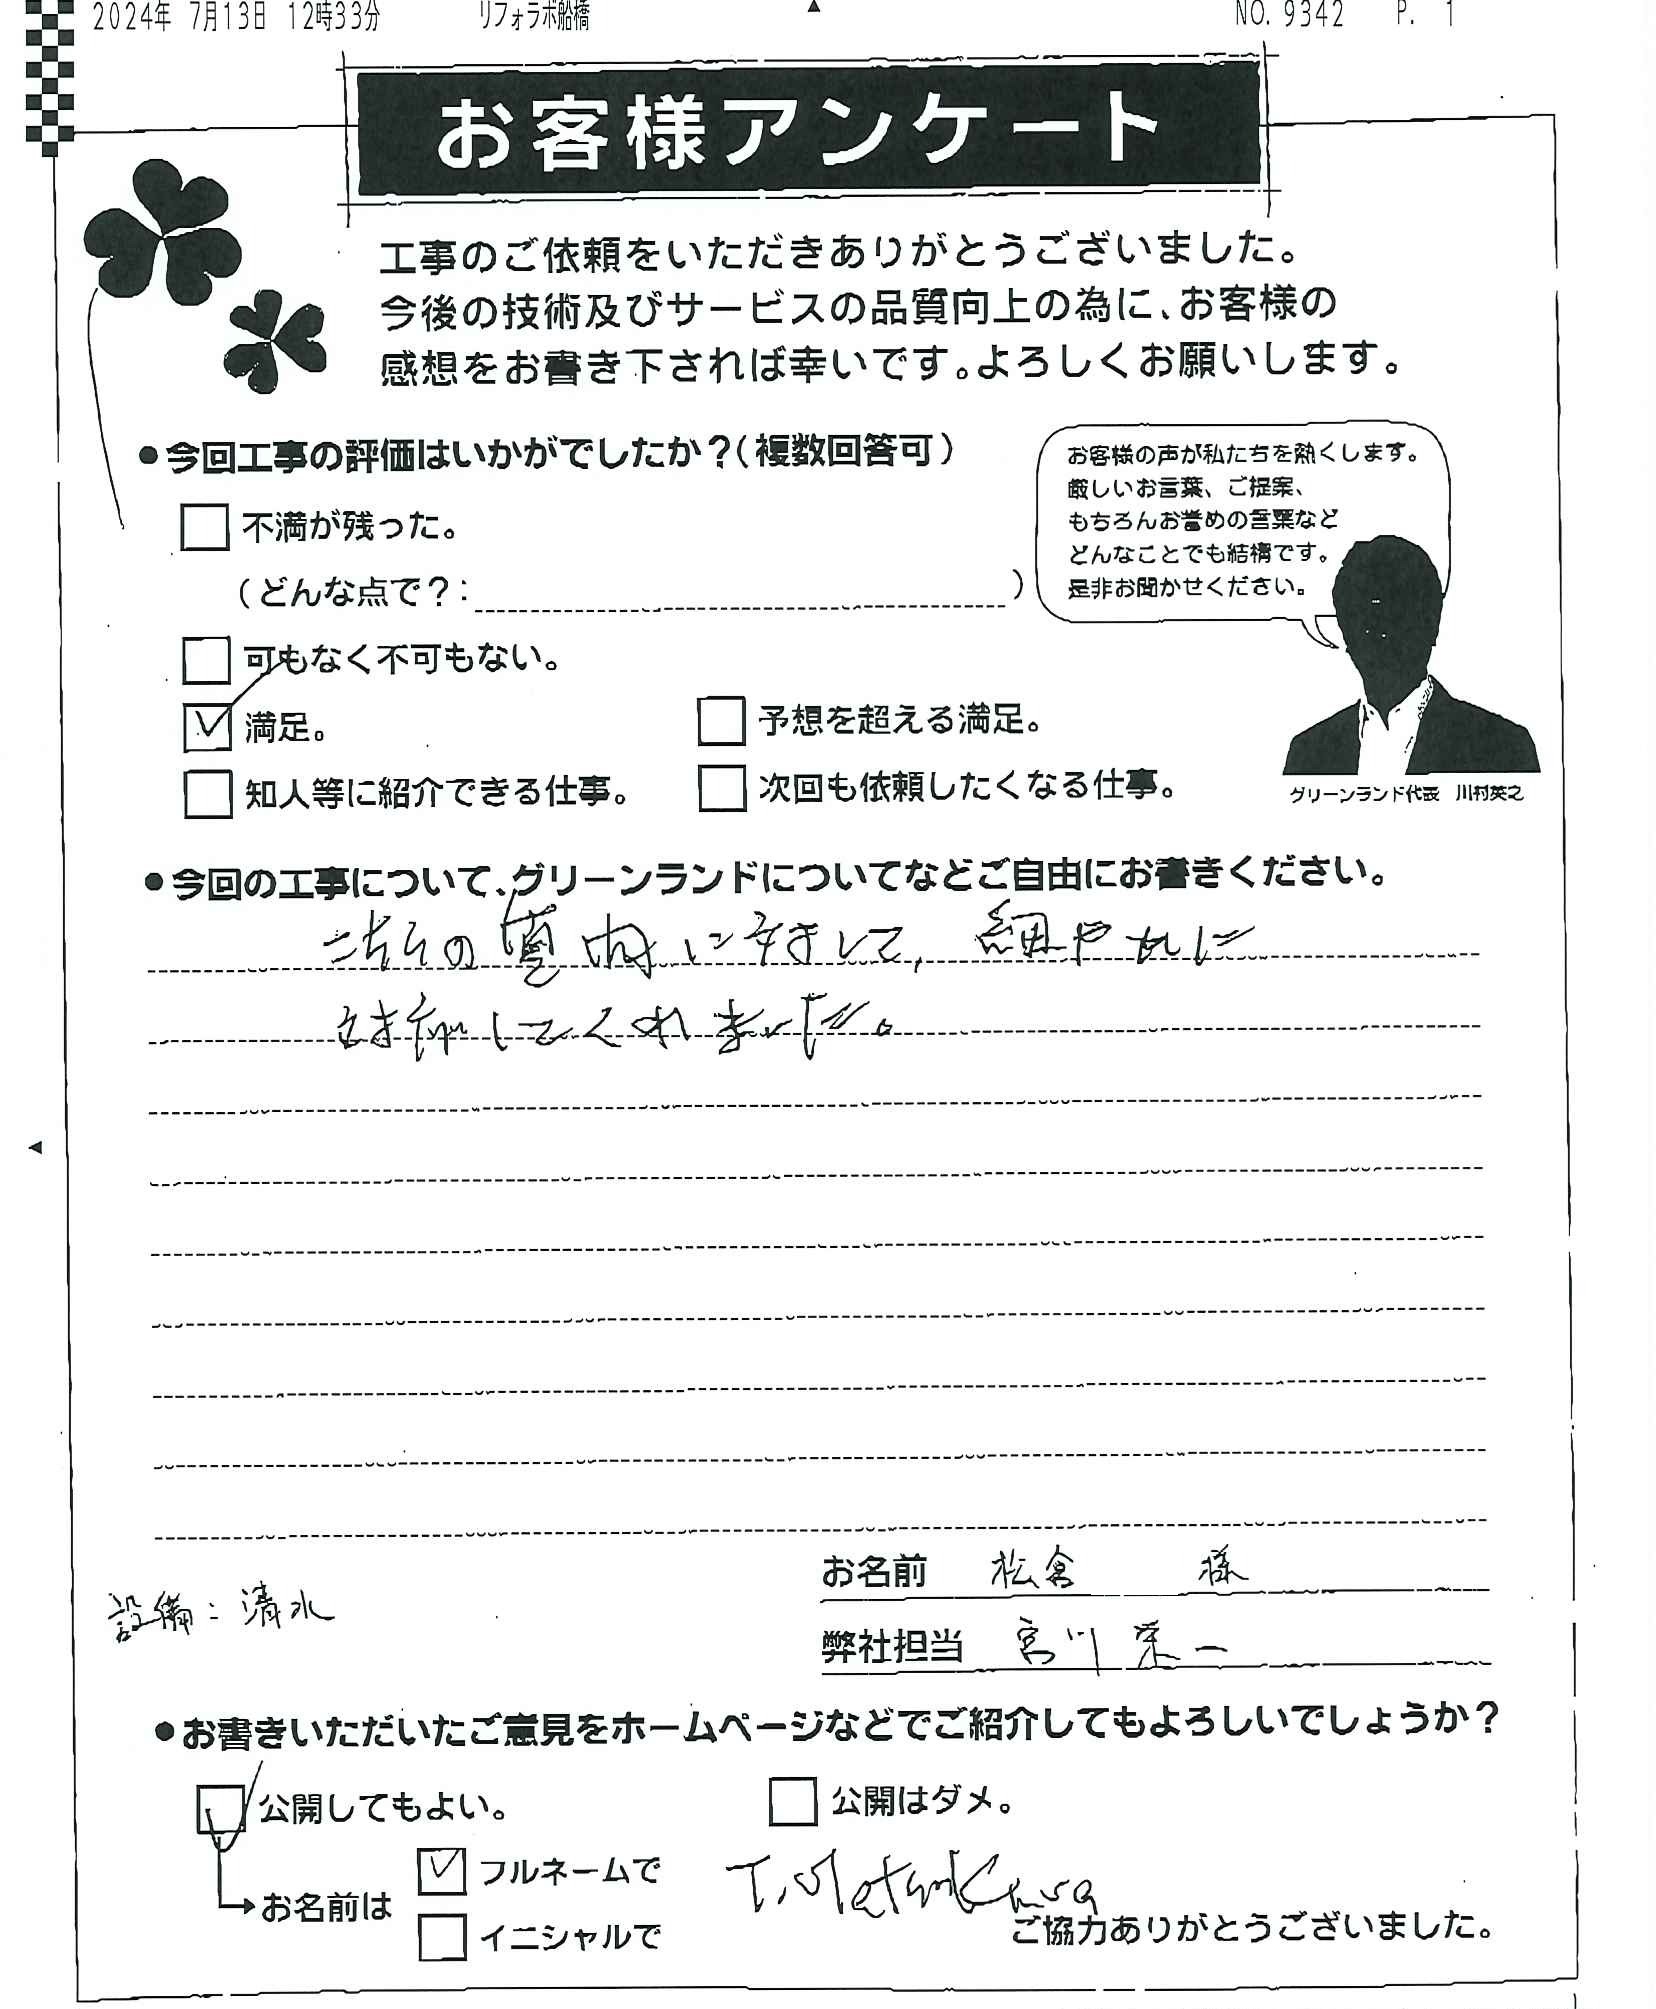 2024年 7月13日 12時33分 リフォラボ船橋 NO. 9342 P. 1
お客様アンケート
工事のご依頼をいただきありがとうございました。
今後の技術及びサービスの品質向上の為に、お客様の
感想をお書き下されば幸いです。よろしくお願いします。
●今回工事の評価はいかがでしたか？（複数回答可）
お客様の声が私たちを熱くします。
厳しいお言葉、ご提案、
もちろんお誉めの言葉など
どんなことでも結構です。
是非お聞かせください。
不満が残った。
（どんな点で？： ）
可もなく不可もない。
満足。
予想を超える満足。
知人等に紹介できる仕事。
次回も依頼したくなる仕事。
グリーンランド代表 川村英之
●今回の工事について、グリーンランドについてなどご自由にお書きください。
こちらの意向に対して、細やかに
対応してくれました。
お名前 松倉 様
設備：清水
弊社担当 宮川栄一
●お書きいただいたご意見をホームページなどでご紹介してもよろしいでしょうか？
公開してもよい。
公開はダメ。
お名前は
フルネームで
イニシャルで
T. Matsukura
ご協力ありがとうございました。